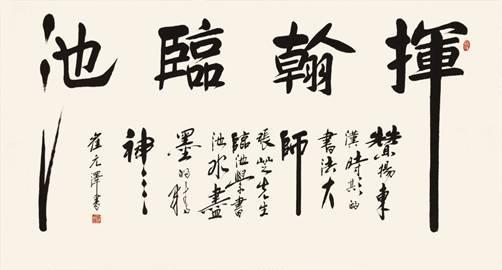 揮翰臨池
贊揚東
漢時期的
書法大
師
張芝先生
臨池學書
池水盡
墨的
神
崔元澤書